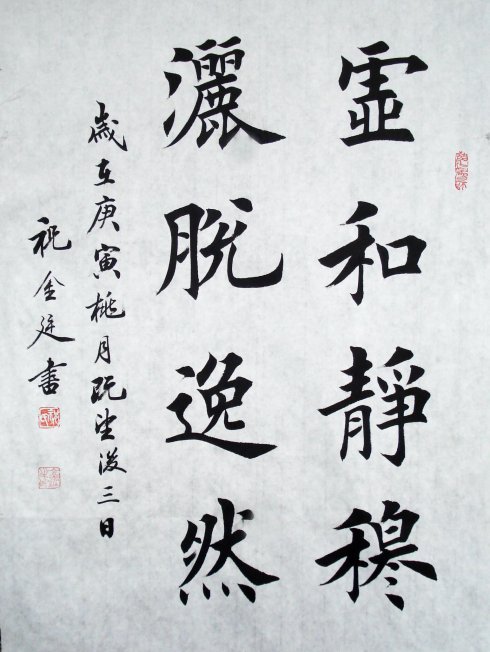 虛和靜穆
灑脫逸然
歲在庚寅桃月既望後三日
祝金廷書